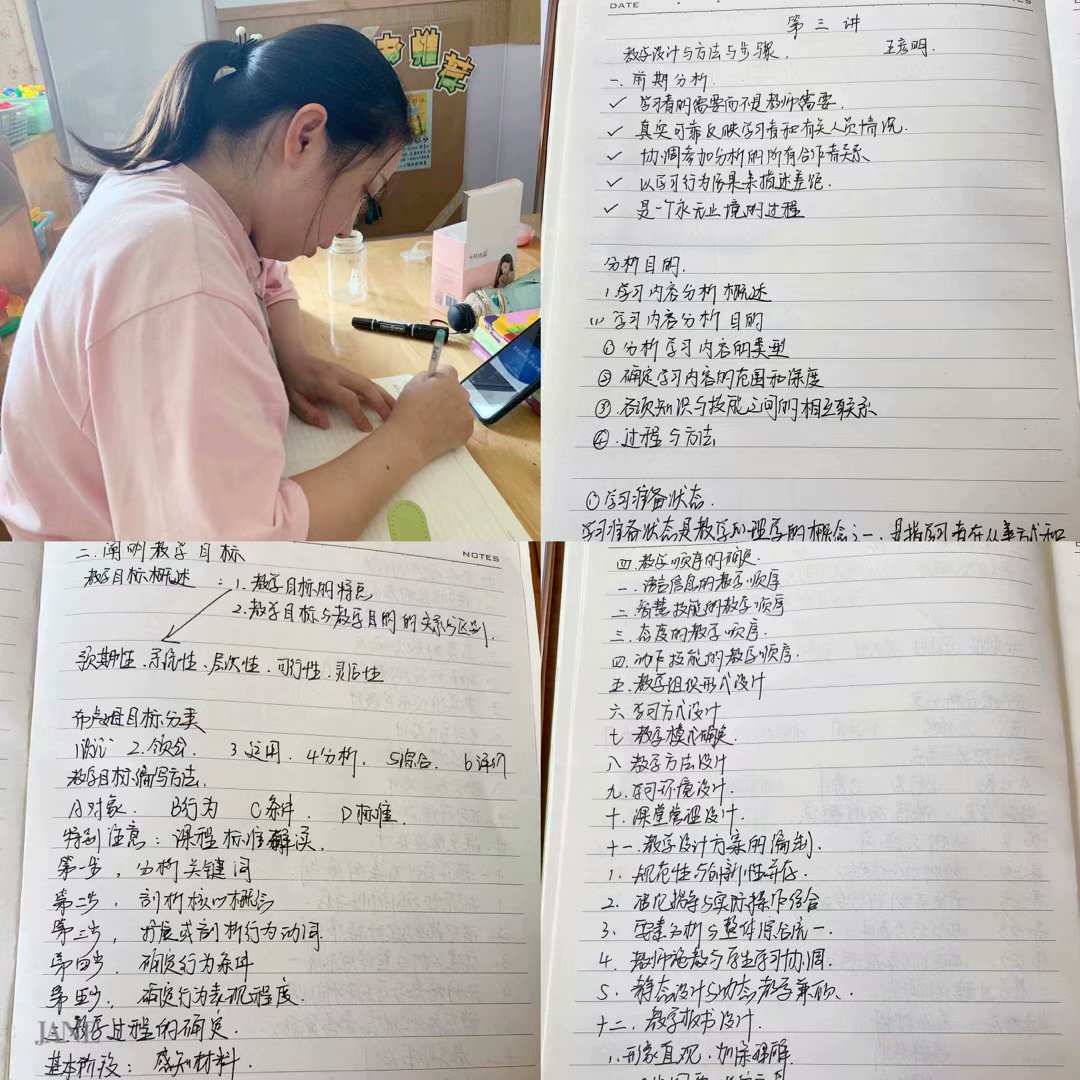 推荐
DATE
NOTES
第三讲
教学设计与方法与步骤. 王彦明.
一.前期分析.
✓ 学习者的需要而不是教师需要.
✓ 真实可靠反映学习者和有关人员情况.
✓ 协调参加分析的所有合作者关系
✓ 以学习行为结果来描述差距.
✓ 是一个永无止境的过程
分析目的.
1.学习内容分析概述
(1)学习内容分析目的
①分析学习内容的类型
②确定学习内容的范围和深度
③各项知识与技能之间的相互联系
④.过程与方法
①学习准备状态.
学习准备状态是教学心理学的概念之一.是指学习者在从事
二.阐明教学目标
NOTES
教学目标概述:1.教学目标的特色
2.教学目标与教学目的的关系与区别.
预期性、系统性、层次性、可行性、灵活性
布卢姆目标分类
1识记 2.领会. 3运用. 4分析. 5综合. 6评价
教学目标编写方法.
A对象. B行为 C条件. D标准.
特别注意:课程标准解读.
第一步,分析关键词
第二步,剖析核心概念
第三步,扩展或剖析行为动词.
第四步.确定行为条件
第五步.确定行为表现程度.
教学过程的确定.
基本阶段:感知材料.
四.教学顺序的确定.
一.语言信息的教学顺序
二.智慧技能的教学顺序
三.态度的教学顺序.
四.动作技能的教学顺序.
五.教学组织形式设计
六.学习方式设计
七.教学模式确定.
八.教学方法设计
九.学习环境设计.
十.课堂管理设计.
十一.教学设计方案的编制.
1.规范性与创新性并存.
2.理论指导与实际操作结合
3.要素分析与整体综合统一.
4.教师施教与学生学习协调.
5.静态设计与动态教学兼顾.
十二.教学板书设计.
1.形象直观.加深理解.